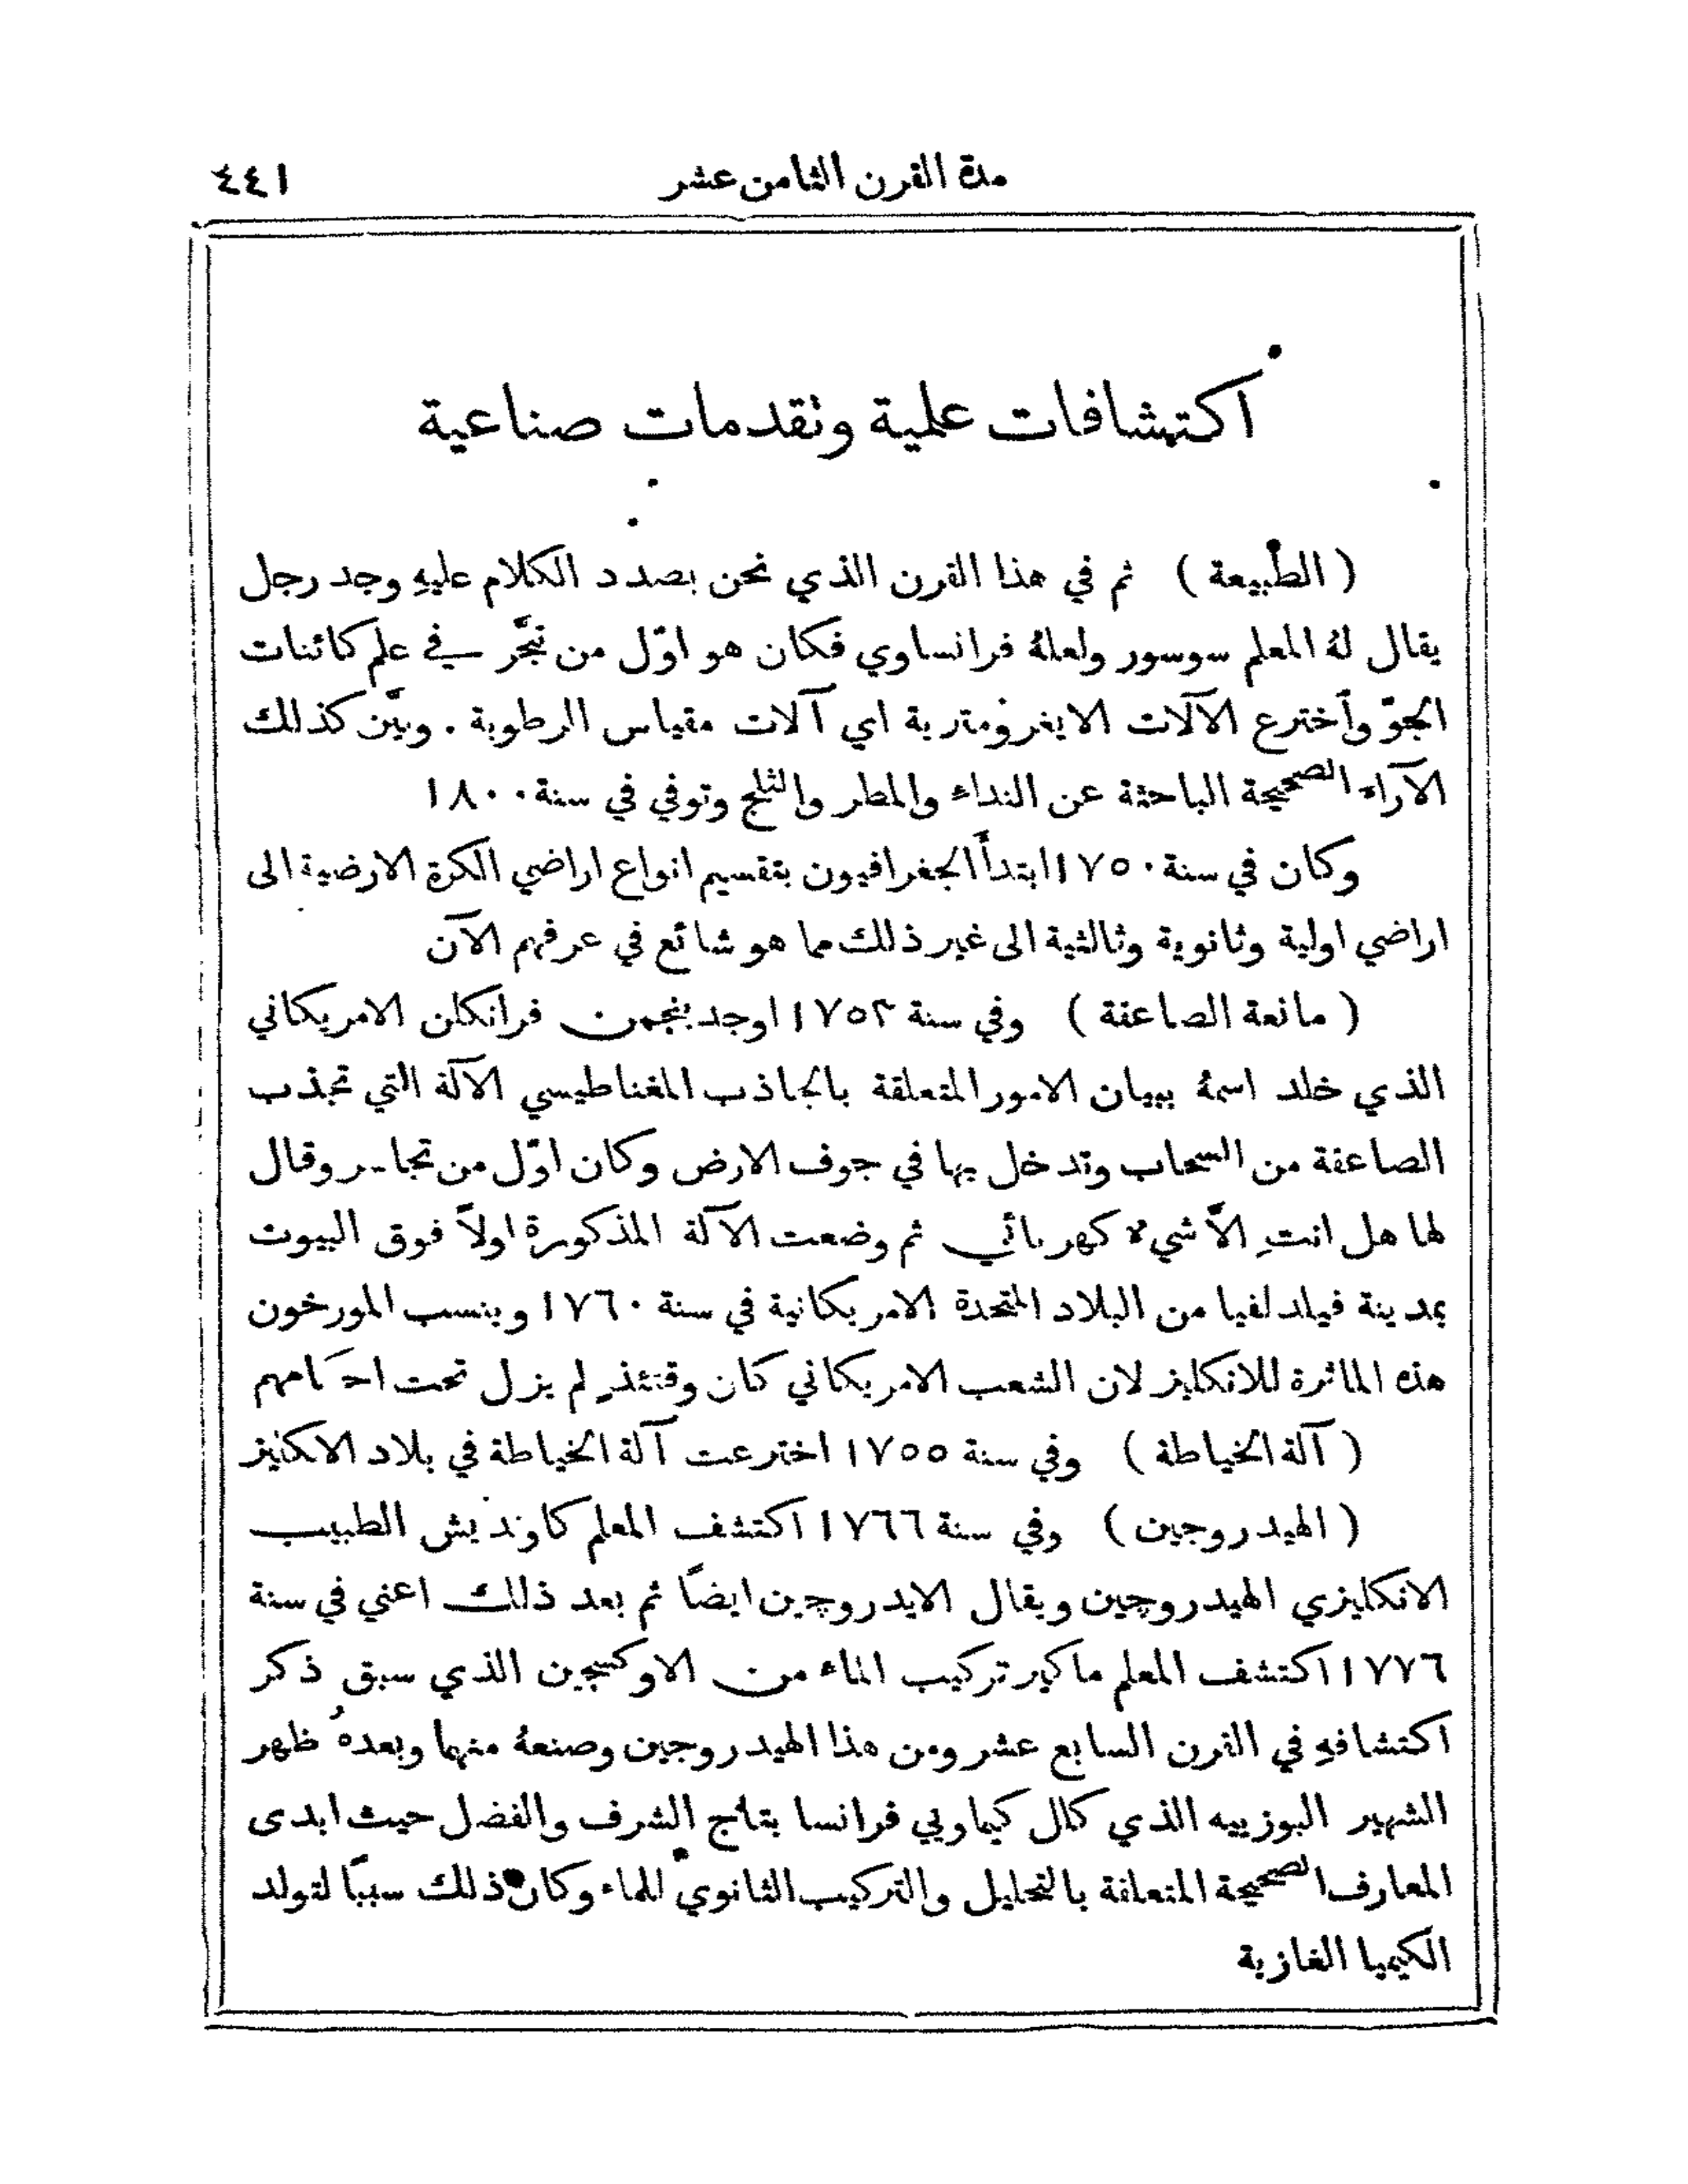 مدة القرن الثامن عشر ٤٤١
اكتشافات علمية وتقدمات صناعية
( الطبيعة ) ثم في هذا القرن الذي نحن بصدد الكلام عليهِ وجد رجل
يقال لهُ المعلم سوسور ولعلهُ فرانساوي فكان هو اوّل من تبحَّر في علم كائنات
الجوّ وأخترع الآلات الايغرومترية اي آلات مقياس الرطوبة . وبيَّن كذلك
الآراء الصحيحة الباحثة عن النداء والمطر والثلج وتوفي في سنة ١٨٠٠
وكان في سنة ١٧٥٠ ابتدأ الجغرافيون بتقسيم انواع اراضي الكرة الارضية الى
اراضي اولية وثانوية وثالثية الى غير ذلك مما هو شائع في عرفهم الآن
( مانعة الصاعقة ) وفي سنة ١٧٥٢ اوجد بنجمن فرانكلن الامريكاني
الذي خلد اسمهُ ببيان الامور المتعلقة بالجاذب المغناطيسي الآلة التي تجذب
الصاعقة من السحاب وتدخل بها في جوف الارض وكان اوّل من تجاسر وقال
لها هل انتِ الّا شيء كهربائي ثم وضعت الآلة المذكورة اولاً فوق البيوت
بمدينة فيلدلفيا من البلاد المتحدة الامريكانية في سنة ١٧٦٠ وينسب المورخون
هذه الماثرة للانكليز لان الشعب الامريكاني كان وقتئذٍ لم يزل تحت احكامهم
( آلة الخياطة ) وفي سنة ١٧٥٥ اخترعت آلة الخياطة في بلاد الانكليز
( الهيدروجين ) وفي سنة ١٧٦٦ اكتشف المعلم كاونديش الطبيب
الانكليزي الهيدروجين ويقال الايدروجين ايضاً ثم بعد ذلك اعني في سنة
١٧٧٦ اكتشف المعلم ماكير تركيب الماء من الاوكسجين الذي سبق ذكر
اكتشافهِ في القرن السابع عشر ومن هذا الهيدروجين وصنعهُ منهما وبعدهُ ظهر
الشهير البوزييه الذي كال كيماويي فرانسا بتاج الشرف والفضل حيث ابدى
المعارف الصحيحة المتعلقة بالتحليل والتركيب الثانوي للماء وكان ذلك سبباً لتولد
الكيميا الغازية